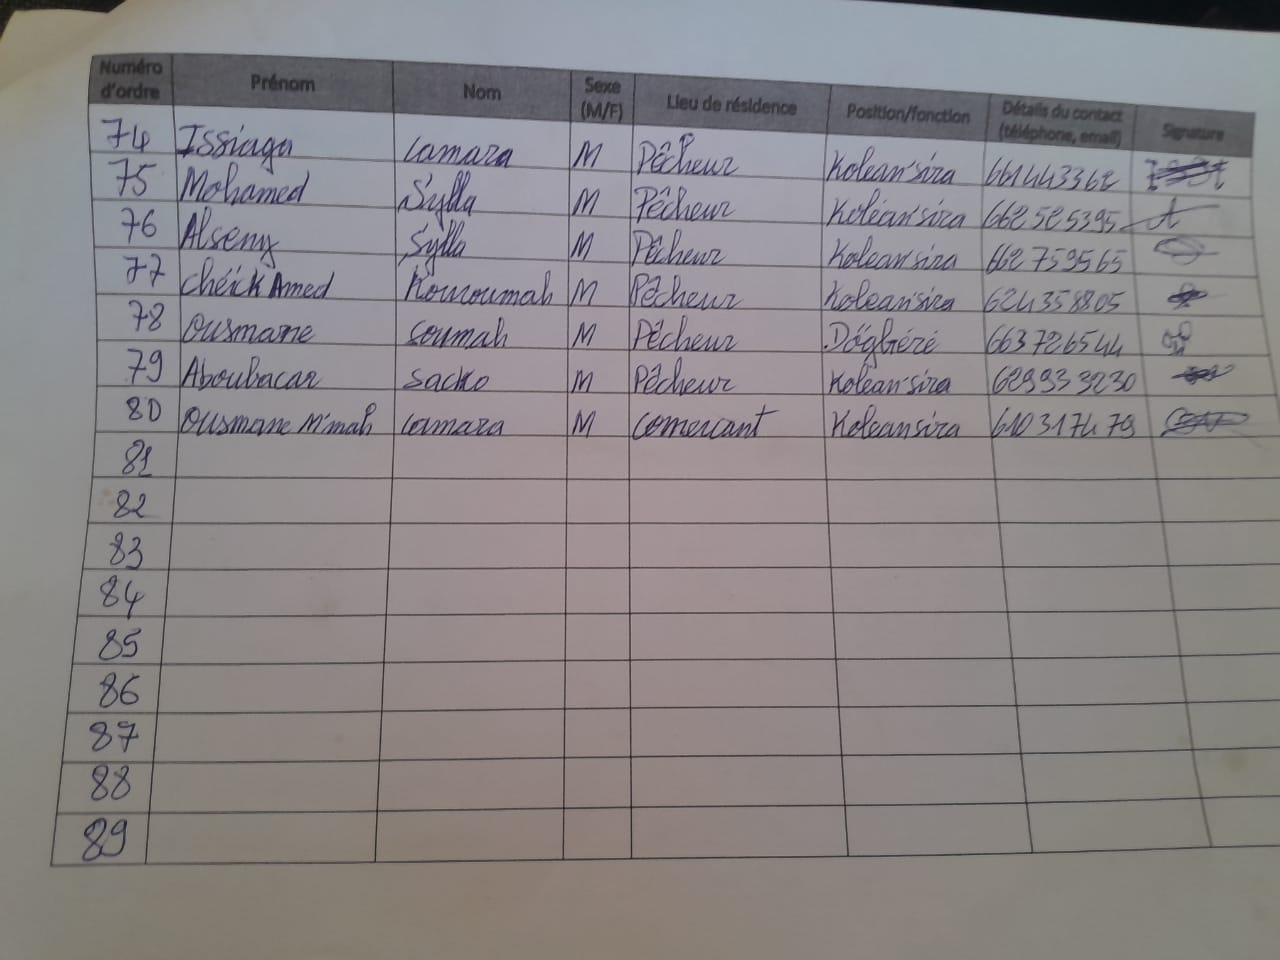 Numéro d'ordre Prénom Nom Sexe (M/F) Lieu de résidence Position/fonction Détails du contact (téléphone, email) Signature
74 Issiaga camara M Pêcheur Koleansira 661443362
75 Mohamed Sylla M Pêcheur Koléansira 662525395
76 Alseny Sylla M Pêcheur Koleansira 662759565
77 chéick Amed Kouroumah M Pêcheur Koleansira 624358805
78 Ousmane soumah M Pêcheur Dögbéré 663726544
79 Aboubacar sacko M Pêcheur Koleansira 629933230
80 Ousmane M'mah camara M comercant Koleansira 610317479
81
82
83
84
85
86
87
88
89